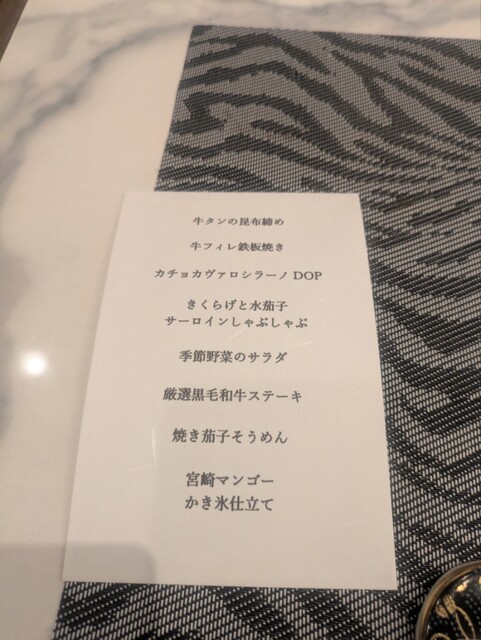 牛タンの昆布締め
牛フィレ鉄板焼き
カチョカヴァロシラーノ DOP
きくらげと水茄子
サーロインしゃぶしゃぶ
季節野菜のサラダ
厳選黒毛和牛ステーキ
焼き茄子そうめん
宮崎マンゴー
かき氷仕立て